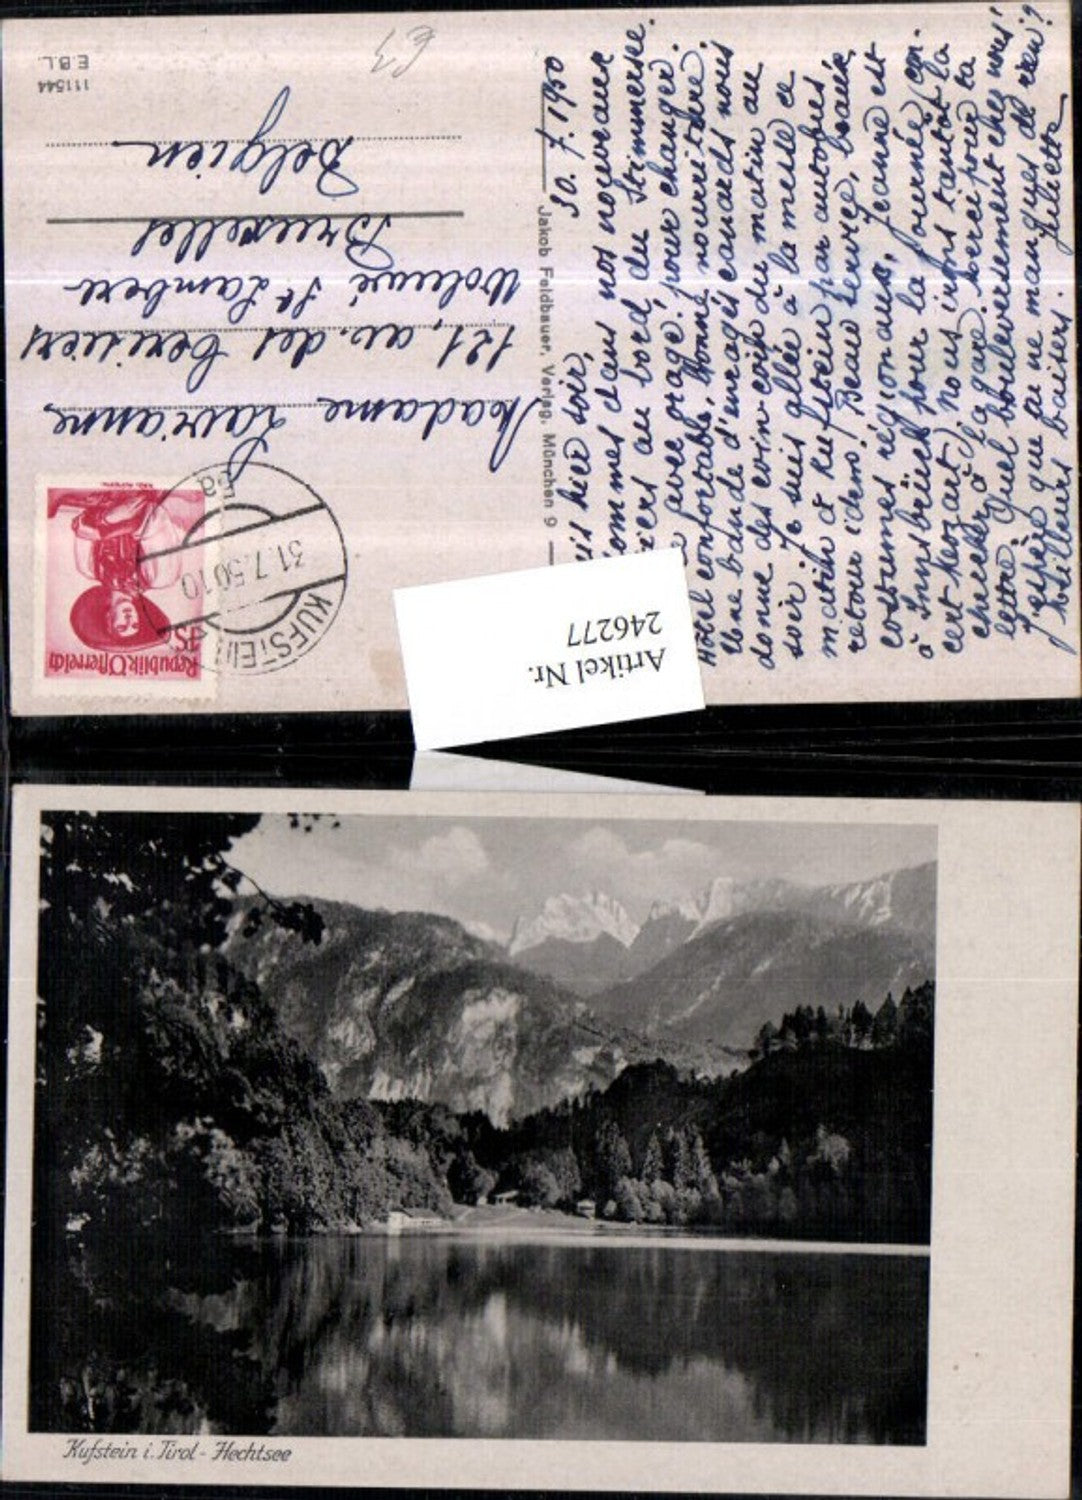 30. 7. 1950
hier soir,
sommes dans nos nouveaux
au bord du Stimmersee.
avec orage! pour changer.
Hôtel confortable, bonne nourriture.
Une bande d'enragés canards nous
donne des coin-coin du matin au
soir. Je suis allée à la messe ce
matin à Kufstein par autobus
retour idem! Beau service, beaux
costumes régionaux. Jeanne est
à Innsbrück pour la journée (con-
cert Mozart). Nous irons tantôt la
chercher à la gare. Merci pour ta
lettre. Quel bouleversement chez vous!
J'espère que tu ne manques de rien?
Meilleurs baisers. Juliette
Jakob Feldbauer, Verlag, München 9
Madame Lavianne
121, av. des Cerisiers
Woluwé St Lambert
Bruxelles
Belgien
111544
E.B.L.
€3
Republik Österreich
1S
KUFSTEIN
31.7.50 10
Artikel Nr.
246277
Kufstein i. Tirol - Hechtsee